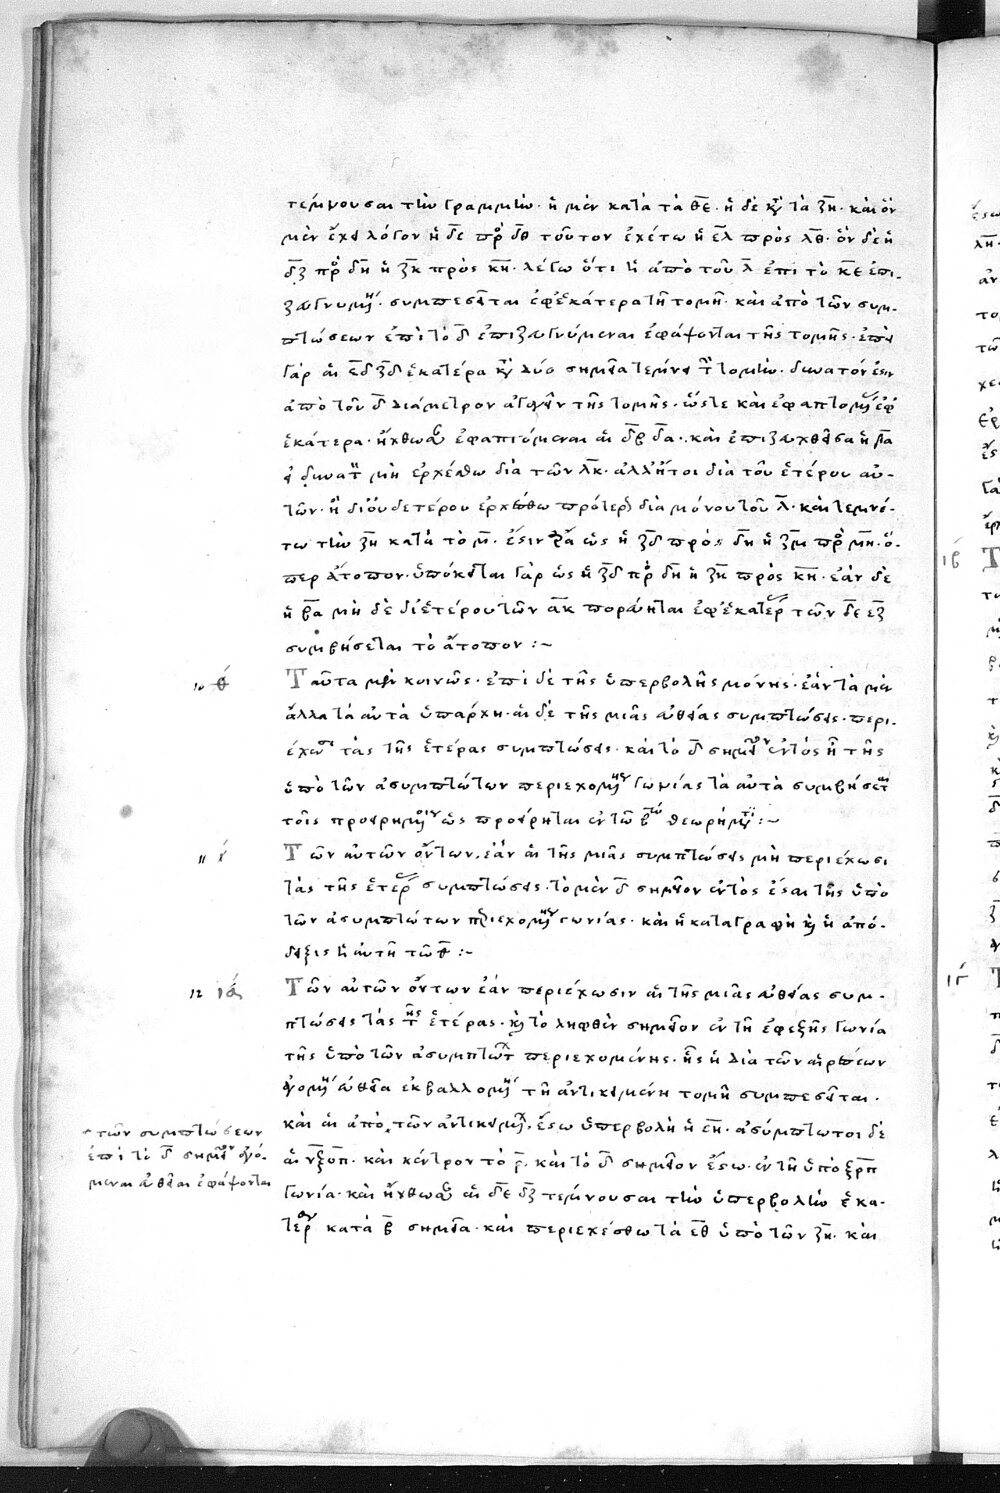 τέμνουσαι τὴν γραμμὴν· ἡ μὲν κατὰ τὰ θ̅ε̅· ἡ δὲ κατὰ τὰ ζ̅η̅· καὶ ὃν
μὲν ἔχει λόγον ἡ δ̅ε̅ πρὸς δ̅θ̅ τοῦτον ἐχέτω ἡ ε̅λ̅ πρὸς λ̅θ̅· ὃν δὲ ἡ
δ̅ζ̅ πρὸς δ̅η̅ ἡ ζ̅κ̅ πρὸς κ̅η̅· λέγω ὅτι ἡ ἀπὸ τοῦ λ̅ ἐπὶ τὸ κ̅ ἐπι-
ζευγνυμένη· συμπεσεῖται ἐφ' ἑκάτερα τῇ τομῇ· καὶ ἀπὸ τῶν συμ-
πτώσεων ἐπὶ τὸ δ̅ ἐπιζευγνύμεναι ἐφάψονται τῆς τομῆς· ἐπεὶ
γὰρ αἱ ε̅δ̅ ζ̅δ̅ ἑκατέρα κατὰ δύο σημεῖα τέμνει τὴν τομὴν· δυνατόν ἐστιν
ἀπὸ τοῦ δ̅ διάμετρον ἀγαγεῖν τῆς τομῆς· ὥστε καὶ ἐφαπτομένας ἐφ'
ἑκάτερα· ἤχθωσαν ἐφαπτόμεναι αἱ δ̅β̅ δ̅α̅· καὶ ἐπιζευχθεῖσα ἡ β̅α̅
εἰ δυνατὸν μὴ ἐρχέσθω διὰ τῶν λ̅κ̅· ἀλλ' ἤτοι διὰ τοῦ ἑτέρου αὐ-
τῶν· ἢ δι' οὐδετέρου ἐρχέσθω πρότερον διὰ μόνου τοῦ λ̅· καὶ τεμνέ-
τω τὴν ζ̅η̅ κατὰ τὸ μ̅· ἔστιν ἄρα ὡς ἡ ζ̅δ̅ πρὸς δ̅η̅ ἡ ζ̅μ̅ πρὸς μ̅η̅· ὅ-
περ ἄτοπον· ὑπόκειται γὰρ ὡς ἡ ζ̅δ̅ πρὸς δ̅η̅ ἡ ζ̅κ̅ πρὸς κ̅η̅· ἐὰν δὲ
ἡ β̅α̅ μὴ δὲ δι' ἑτέρου τῶν λ̅κ̅ πορεύηται ἐφ' ἑκατέρας τῶν δ̅ε̅ ε̅ζ̅
συμβήσεται τὸ ἄτοπον :~
10 θ́ Ταῦτα μὲν κοινῶς· ἐπὶ δὲ τῆς ὑπερβολῆς μόνης· ἐὰν τὰ μὲν
ἄλλα τὰ αὐτὰ ὑπάρχῃ· αἱ δὲ τῆς μιᾶς εὐθείας συμπτώσεις· περι-
έχωσι τὰς τῆς ἑτέρας συμπτώσεις· καὶ τὸ δ̅ σημεῖον ἐντὸς ᾖ τῆς
ὑπὸ τῶν ἀσυμπτώτων περιεχομένης γωνίας τὰ αὐτὰ συμβήσεται
τοῖς προειρημένοις ὡς προείρηται ἐν τῷ β̅ θεωρήματι :~
11 ί Τῶν αὐτῶν ὄντων, ἐὰν αἱ τῆς μιᾶς συμπτώσεις μὴ περιέχωσι
τὰς τῆς ἑτέρας συμπτώσεις· τὸ μὲν δ̅ σημεῖον ἐντὸς ἔσται τῆς ὑπὸ
τῶν ἀσυμπτώτων περιεχομένης γωνίας· καὶ ἡ καταγραφὴ καὶ ἡ ἀπό-
δειξις ἡ αὐτὴ τῷ θ̅ :~
12 ιά Τῶν αὐτῶν ὄντων ἐὰν περιέχωσιν αἱ τῆς μιᾶς εὐθείας συμ-
πτώσεις τὰς τῆς ἑτέρας· καὶ τὸ ληφθὲν σημεῖον ἐν τῇ ἐφεξῆς γωνίᾳ
τῆς ὑπὸ τῶν ἀσυμπτώτων περιεχομένης· ᾖ ἡ διὰ τῶν διαιρέσεων
ἀγομένη εὐθεῖα ἐκβαλλομένη τῇ ἀντικειμένῃ τομῇ συμπεσεῖται·
καὶ αἱ ἀπὸ τῶν ἀντικειμένων, ἔστω ὑπερβολὴ ἡ ε̅η̅· ἀσύμπτωτοι δὲ
+ τῶν συμπτώσεων
ἐπὶ τὸ δ̅ σημεῖον ἀγό-
μεναι εὐθεῖαι ἐφάψονται
αἱ ν̅ξ̅ ο̅π̅· καὶ κέντρον τὸ ρ̅· καὶ τὸ δ̅ σημεῖον ἔστω· ἐν τῇ ὑπὸ ξ̅ρ̅π̅
γωνίᾳ· καὶ ἤχθωσαν αἱ δ̅ε̅ δ̅ζ̅ τέμνουσαι τὴν ὑπερβολὴν ἑκα-
τέρα κατὰ β̅ σημεῖα· καὶ περιεχέσθω τὰ ε̅θ̅ ὑπὸ τῶν ζ̅η̅· καὶ
ιβ́
ιγ́